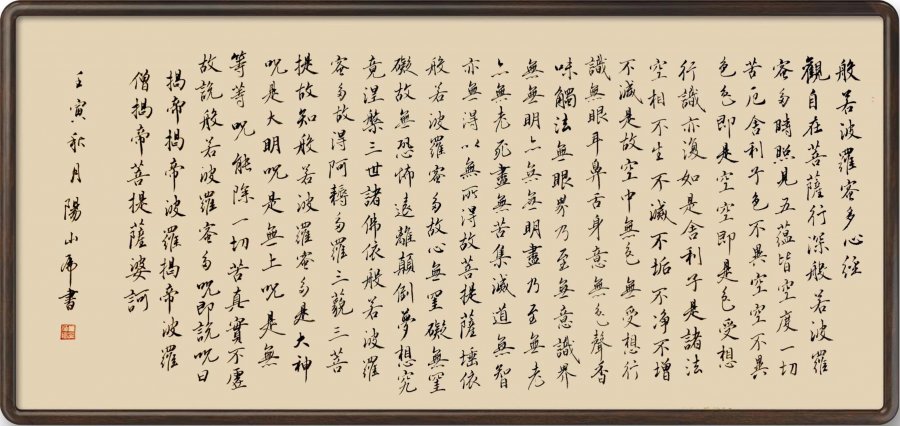 般若波羅蜜多心經
觀自在菩薩行深般若波羅
蜜多時照見五蘊皆空度一切
苦厄舍利子色不異空空不異
色色即是空空即是色受想
行識亦復如是舍利子是諸法
空相不生不滅不垢不淨不增
不減是故空中無色無受想行
識無眼耳鼻舌身意無色聲香
味觸法無眼界乃至無意識界
無無明亦無無明盡乃至無老
亦無老死盡無苦集滅道無智
亦無得以無所得故菩提薩埵依
般若波羅蜜多故心無罣礙無罣
礙故無恐怖遠離顛倒夢想究
竟涅槃三世諸佛依般若波羅
蜜多故得阿耨多羅三藐三菩
提故知般若波羅蜜多是大神
呪是大明呪是無上呪是無
等等呪能除一切苦真實不虛
故說般若波羅蜜多呪即說呪曰
揭帝揭帝波羅揭帝波羅
僧揭帝菩提薩婆訶
壬寅秋月陽山虎書